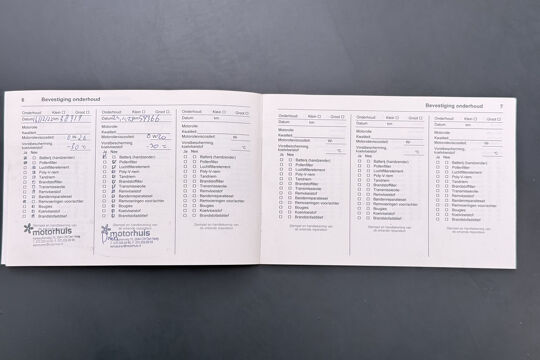 6 Bevestiging onderhoud
Onderhoud: Klein Groot
Datum km
Motorolie
Kwaliteit
Motorolieviscositeit W-
Vorstbescherming
koelvloeistof -30 °C
Ja Nee
Batterij (handzender)
Pollenfilter
Luchtfilterelement
Poly-V-riem
Tandriem
Brandstoffilter
Transmissieolie
Remvloeistof
Bandenreparatieset
Remvoeringen voor/achter
Bougies
Koelvloeistof
Brandstofadditief
motorhuis
Onderhoud: Klein Groot
Datum km
Motorolie
Kwaliteit
Motorolieviscositeit
Vorstbescherming
koelvloeistof -30 °C
Ja Nee
Batterij (handzender)
Pollenfilter
Luchtfilterelement
Poly-V-riem
Tandriem
Brandstoffilter
Transmissieolie
Remvloeistof
Bandenreparatieset
Remvoeringen voor/achter
Bougies
Koelvloeistof
Brandstofadditief
motorhuis
Onderhoud: Klein Groot
Datum km
Motorolie
Kwaliteit
Motorolieviscositeit W-
Vorstbescherming
koelvloeistof °C
Ja Nee
Batterij (handzender)
Pollenfilter
Luchtfilterelement
Poly-V-riem
Tandriem
Brandstoffilter
Transmissieolie
Remvloeistof
Bandenreparatieset
Remvoeringen voor/achter
Bougies
Koelvloeistof
Brandstofadditief
Stempel en handtekening van
de erkende reparateur
Bevestiging onderhoud 7
Onderhoud: Klein Groot
Datum km
Motorolie
Kwaliteit
Motorolieviscositeit W-
Vorstbescherming
koelvloeistof °C
Ja Nee
Batterij (handzender)
Pollenfilter
Luchtfilterelement
Poly-V-riem
Tandriem
Brandstoffilter
Transmissieolie
Remvloeistof
Bandenreparatieset
Remvoeringen voor/achter
Bougies
Koelvloeistof
Brandstofadditief
Stempel en handtekening van
de erkende reparateur
Onderhoud: Klein Groot
Datum km
Motorolie
Kwaliteit
Motorolieviscositeit W-
Vorstbescherming
koelvloeistof °C
Ja Nee
Batterij (handzender)
Pollenfilter
Luchtfilterelement
Poly-V-riem
Tandriem
Brandstoffilter
Transmissieolie
Remvloeistof
Bandenreparatieset
Remvoeringen voor/achter
Bougies
Koelvloeistof
Brandstofadditief
Stempel en handtekening van
de erkende reparateur
Onderhoud: Klein Groot
Datum km
Motorolie
Kwaliteit
Motorolieviscositeit W-
Vorstbescherming
koelvloeistof °C
Ja Nee
Batterij (handzender)
Pollenfilter
Luchtfilterelement
Poly-V-riem
Tandriem
Brandstoffilter
Transmissieolie
Remvloeistof
Bandenreparatieset
Remvoeringen voor/achter
Bougies
Koelvloeistof
Brandstofadditief
Stempel en handtekening van
de erkende reparateur